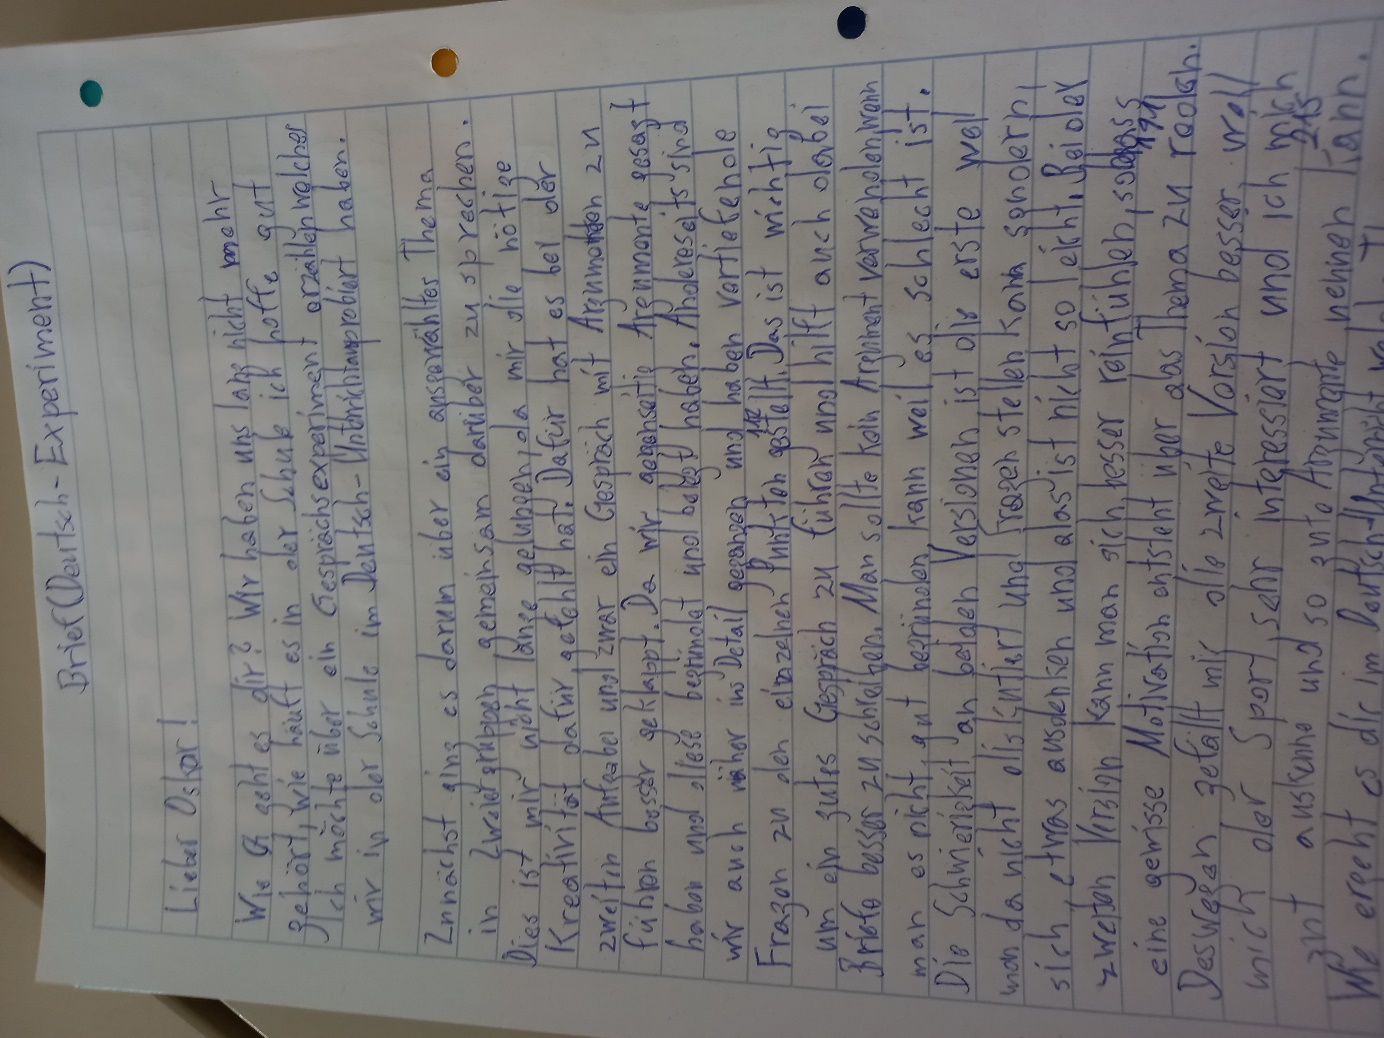 Brief (Deutsch-Experiment)
Lieber Oskar!
Wie geht es dir? Wir haben uns lange nicht mehr
gehört, wie läuft es in der Schule ich hoffe gut
Ich möchte über ein Gesprächsexperiment erzählen welches
wir in der Schule im Deutsch-Unterricht ausprobiert haben.
Zunächst ging es darum über ein ausgewähltes Thema
in Zweiergruppen gemeinsam darüber zu sprechen.
Dies ist mir nicht lange gelungen, da mir die nötige
Kreativität dafür gefehlt hat. Dafür hat es bei der
zweiten Aufgabe und zwar ein Gespräch mit Argumenten zu
führen besser geklappt. Da wir gegenseitig Argumente gesagt
haben und diese begründet und belegt haben. Andereseits sind
wir auch näher ins Detail gegangen und haben vertiefende
Fragen zu den einzelnen Punkten gestellt. Das ist wichtig
112
um ein gutes Gespräch zu führen und hilft auch dabei
Briefe besser zu schreiben. Man sollte kein Argument verwenden, wenn
man es nicht gut begründen kann weil es schlecht ist.
Die Schwierigkeit an beiden Versionen ist die erste weil
man da nicht diskutiert und Fragen stellen kann sondern,
sich etwas ausdenken und das ist nicht so leicht. Bei der
zweiten Version kann man sich besser reinfühlen, sodass
191
eine gewisse Motivation entsteht über das Thema zu reden.
Deswegen gefällt mir die zweite Version besser weil
mich der Sport sehr interessiert und ich mich
215
gut auskenne und so gute Argumente nennen kann.
Wie ergeht es dir im Deutsch-Unterricht